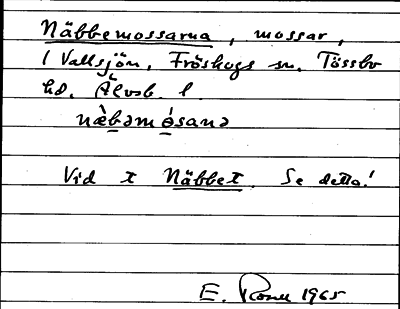 Näbbemossarna, mossar,
i Vallsjön, Fröskogs sn. Tössbo
hd. Älvsb. l.
næ̀bəmósanə
Vid ⵜ Näbbet. Se detta!
E. 1965